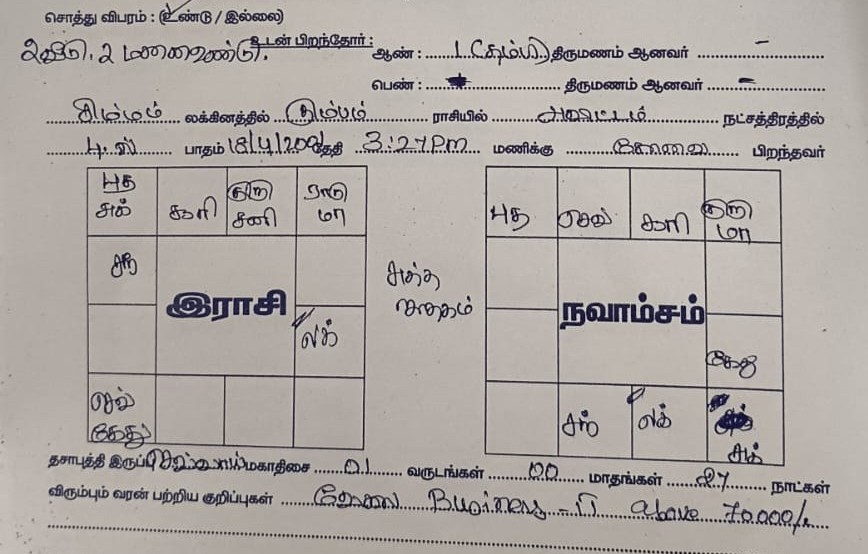 சொத்து விபரம் : (உண்டு / இல்லை)
2வீடு, 2 மனைஉண்டு. உடன் பிறந்தோர் : ஆண் : 1 (தம்பி) திருமணம் ஆனவர் –
பெண் : திருமணம் ஆனவர் –
சிம்மம் லக்கினத்தில் கும்பம் ராசியில் அவிட்டம் நட்சத்திரத்தில்
4.ஸ் பாதம் தேதி 3:27 PM மணிக்கு பிறந்தவர்
புத சுக் சூரி குரு சனி ராகு மா
புத செவ் சூரி குரு மா
சந்
இராசி
லக்
சித்த
நவாம்சம்
கேது
செவ் கேது
சந் லக் சுக்
தசாபுத்தி இருப்பு செவ்வாய் மகாதிசை 01 வருடங்கள் 00 மாதங்கள் 27 நாட்கள்
விரும்பும் வரன் பற்றிய குறிப்புகள் வேலை Business - IT above 70.000/-